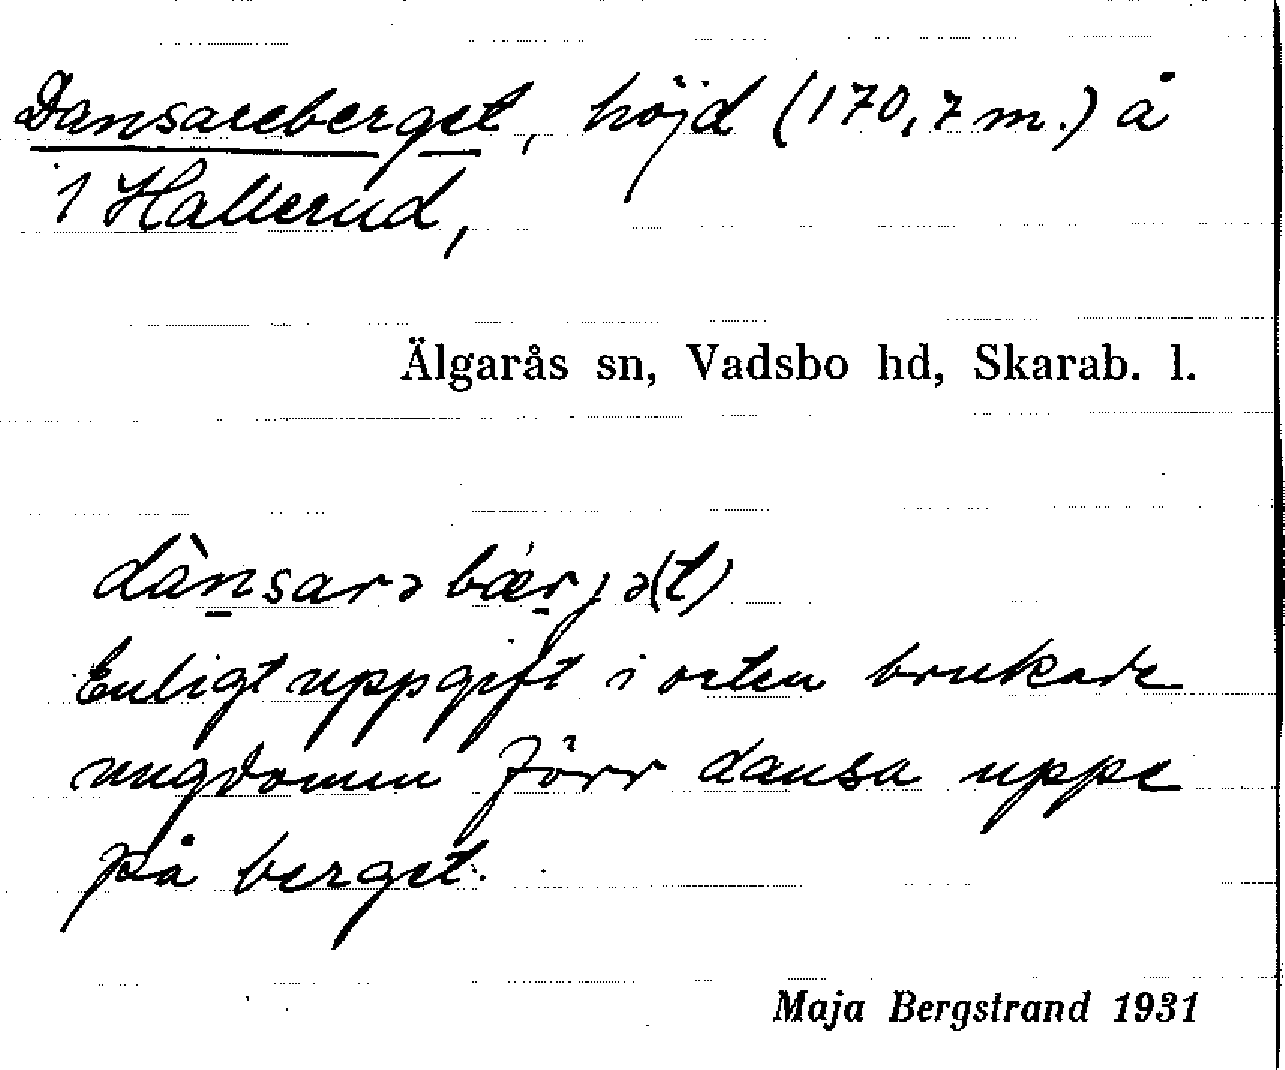 Dansareberget, höjd (170,7 m.) å
1 Hallerud,
Älgarås sn, Vadsbo hd, Skarab. l.
dànsarə bær̀jə(t)
Enligt uppgift i orten brukade
ungdomen förr dansa uppe
på berget.
Maja Bergstrand 1931